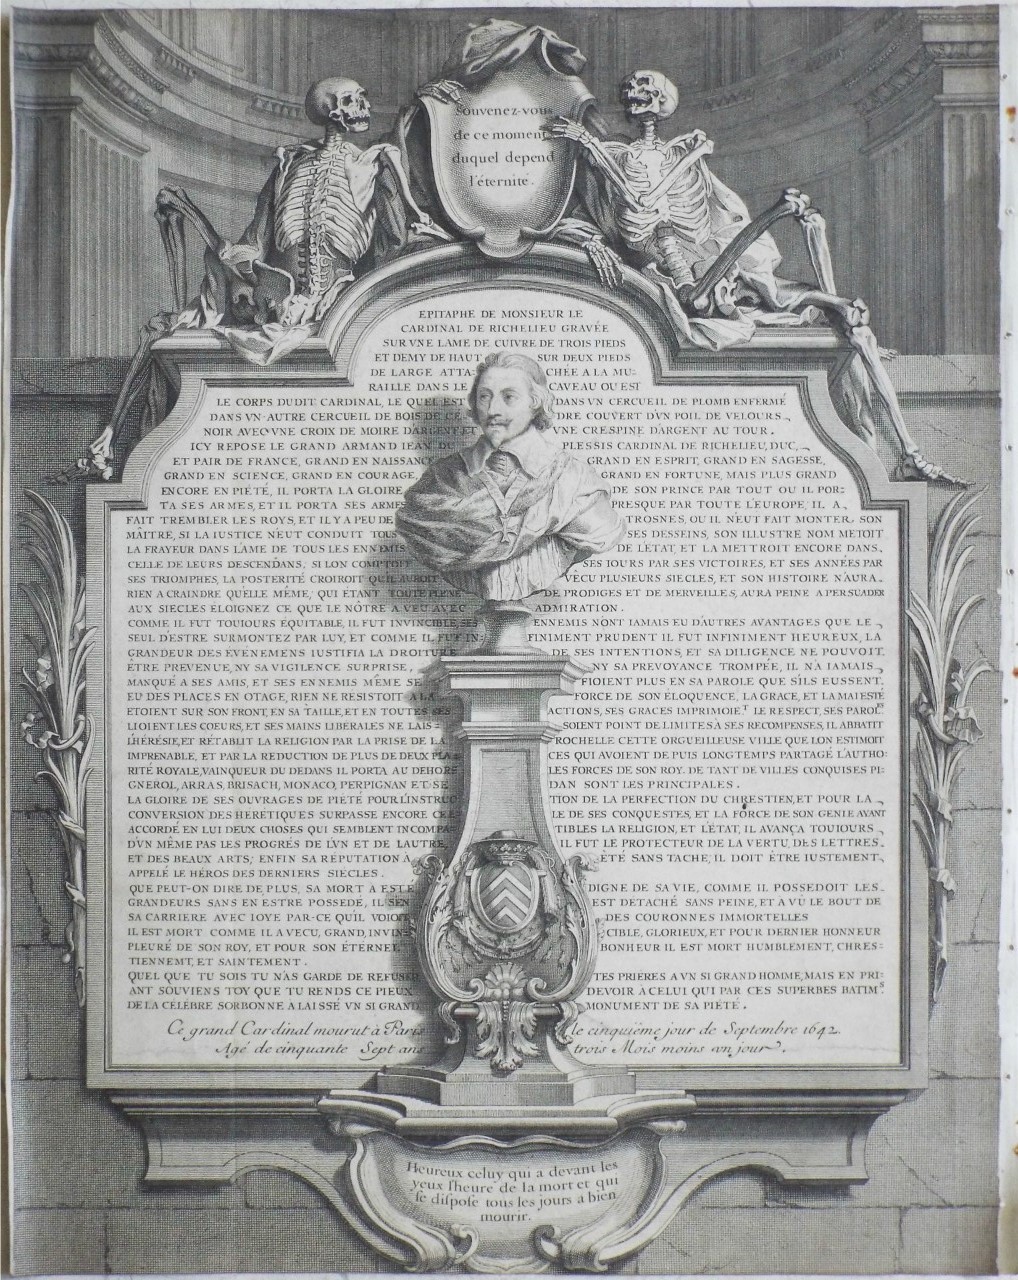 Souvenez-vous
de ce moment
duquel depend
l'éternité.
EPITAPHE DE MONSIEUR LE
CARDINAL DE RICHELIEU GRAVÉE
SUR VNE LAME DE CUIVRE DE TROIS PIEDS
ET DEMY DE HAUT SUR DEUX PIEDS
DE LARGE ATTA: CHÉE A LA MU:
RAILLE DANS LE CAVEAU OU EST
LE CORPS DUDIT CARDINAL, LE QUEL EST DANS VN CERCUEIL DE PLOMB ENFERMÉ
DANS VN AUTRE CERCUEIL DE BOIS DE CE: DRE COUVERT D'VN POIL DE VELOURS
NOIR AVEC VNE CROIX DE MOIRE D'ARGENT ET VNE CRESPINE D'ARGENT AU TOUR.
ICY REPOSE LE GRAND ARMAND IEAN DU PLESSIS CARDINAL DE RICHELIEU, DUC,
ET PAIR DE FRANCE, GRAND EN NAISSANCE GRAND EN ESPRIT, GRAND EN SAGESSE,
GRAND EN SCIENCE, GRAND EN COURAGE, GRAND EN FORTUNE, MAIS PLUS GRAND
ENCORE EN PIÉTÉ, IL PORTA LA GLOIRE DE SON PRINCE PAR TOUT OU IL POR:
TA SES ARMES, ET IL PORTA SES ARMES PRESQUE PAR TOUTE L'EUROPE, IL A
FAIT TREMBLER LES ROYS, ET IL Y A PEU DE TROSNES, OU IL N'EUT FAIT MONTER SON
MAÎTRE, SI LA IUSTICE N'EUT CONDUIT TOUS SES DESSEINS, SON ILLUSTRE NOM METOIT
LA FRAYEUR DANS L'AME DE TOUS LES ENNEMIS DE L'ÉTAT, ET LA METTROIT ENCORE DANS
CELLE DE LEURS DESCENDANS. SI L'ON COMPTOIT SES IOURS PAR SES VICTOIRES, ET SES ANNÉES PAR
SES TRIOMPHES, LA POSTERITÉ CROIROIT QU'IL AUROIT VÉCU PLUSIEURS SIECLES, ET SON HISTOIRE N'AURA
RIEN A CRAINDRE QU'ELLE MÊME, QUI ÉTANT TOUTE PLEINE DE PRODIGES ET DE MERVEILLES, AURA PEINE A PERSUADER
AUX SIECLES ELOIGNEZ CE QUE LE NÔTRE A VEU AVEC ADMIRATION.
COMME IL FUT TOUIOURS EQUITABLE, IL FUT INVINCIBLE, SES ENNEMIS N'ONT IAMAIS EU D'AUTRES AVANTAGES QUE LE
SEUL D'ESTRE SURMONTEZ PAR LUY, ET COMME IL FUT IN: FINIMENT PRUDENT IL FUT INFINIMENT HEUREUX, LA
GRANDEUR DES EVENEMENS IUSTIFIA LA DROITURE DE SES INTENTIONS, ET SA DILIGENCE NE POUVOIT
ÊTRE PREVENUE, NY SA VIGILENCE SURPRISE, NY SA PREVOYANCE TROMPÉE, IL N'A IAMAIS
MANQUÉ A SES AMIS, ET SES ENNEMIS MÊME SE FIOIENT PLUS EN SA PAROLE QUE S'ILS EUSSENT
EU DES PLACES EN OTAGE, RIEN NE RESISTOIT A LA FORCE DE SON ÉLOQUENCE, LA GRACE, ET LA MAIESTÉ
ETOIENT SUR SON FRONT, EN SA TAILLE, ET EN TOUTES SES ACTIONS, SES GRACES IMPRIMOIE.T LE RESPECT, SES PAROL.ES
LIOIENT LES COEURS, ET SES MAINS LIBERALES NE LAIS= SOIENT POINT DE LIMITES A SES RECOMPENSES, IL ABBATIT
L'HÉRÉSIE, ET RÉTABLIT LA RELIGION PAR LA PRISE DE LA ROCHELLE CETTE ORGUEILLEUSE VILLE QUE L'ON ESTIMOIT
IMPRENABLE, ET PAR LA REDUCTION DE PLUS DE DEUX PLA= CES QUI AVOIENT DE PUIS LONGTEMPS PARTAGÉ L'AUTHO:
RITÉ ROYALE, VAINQUEUR DU DEDANS IL PORTA AU DEHORS LES FORCES DE SON ROY. DE TANT DE VILLES CONQUISES PI:
GNEROL, ARRAS, BRISACH, MONACO, PERPIGNAN ET SE DAN SONT LES PRINCIPALES.
LA GLOIRE DE SES OUVRAGES DE PIETÉ POUR L'INSTRUC TION DE LA PERFECTION DU CHRESTIEN, ET POUR LA
CONVERSION DES HERETIQUES SURPASSE ENCORE CEL= LE DE SES CONQUESTES, ET LA FORCE DE SON GENIE AYANT
ACCORDÉ EN LUI DEUX CHOSES QUI SEMBLENT INCOMPA= TIBLES LA RELIGION, ET L'ÉTAT, IL AVANÇA TOUIOURS
D'VN MÊME PAS LES PROGRÉS DE L'VN ET DE L'AUTRE, IL FUT LE PROTECTEUR DE LA VERTU, DES LETTRES
ET DES BEAUX ARTS, ENFIN SA RÉPUTATION A ÉTÉ SANS TACHE, IL DOIT ÊTRE IUSTEMENT
APPELÉ LE HÉROS DES DERNIERS SIÈCLES.
QUE PEUT-ON DIRE DE PLUS, SA MORT A ESTÉ DIGNE DE SA VIE, COMME IL POSSEDOIT LES
GRANDEURS SANS EN ESTRE POSSEDÉ, IL S'EN EST DETACHÉ SANS PEINE, ET A VÛ LE BOUT DE
SA CARRIERE AVEC IOYE PAR-CE QU'IL VOIOIT DES COURONNES IMMORTELLES
IL EST MORT COMME IL A VECU, GRAND, INVIN= CIBLE, GLORIEUX, ET POUR DERNIER HONNEUR
PLEURÉ DE SON ROY, ET POUR SON ÉTERNEL BONHEUR IL EST MORT HUMBLEMENT, CHRES=
TIENNEM.T, ET SAINTEMENT.
QUEL QUE TU SOIS TU N'AS GARDE DE REFUSER TES PRIÈRES A VN SI GRAND HOMME, MAIS EN PRI=
ANT SOUVIENS TOY QUE TU RENDS CE PIEUX DEVOIR À CELUI QUI PAR CES SUPERBES BATIM.S
DE LA CÉLÈBRE SORBONNE A LAISSÉ VN SI GRAND MONUMENT DE SA PIÉTÉ.
Ce grand Cardinal mourut à Paris le cinquiême jour de Septembre 1642.
Agé de cinquante Sept ans trois Mois moins vn jour.
Heureux celuy qui a devant les
yeux l'heure de la mort et qui
se dispose tous les jours a bien
mourir.